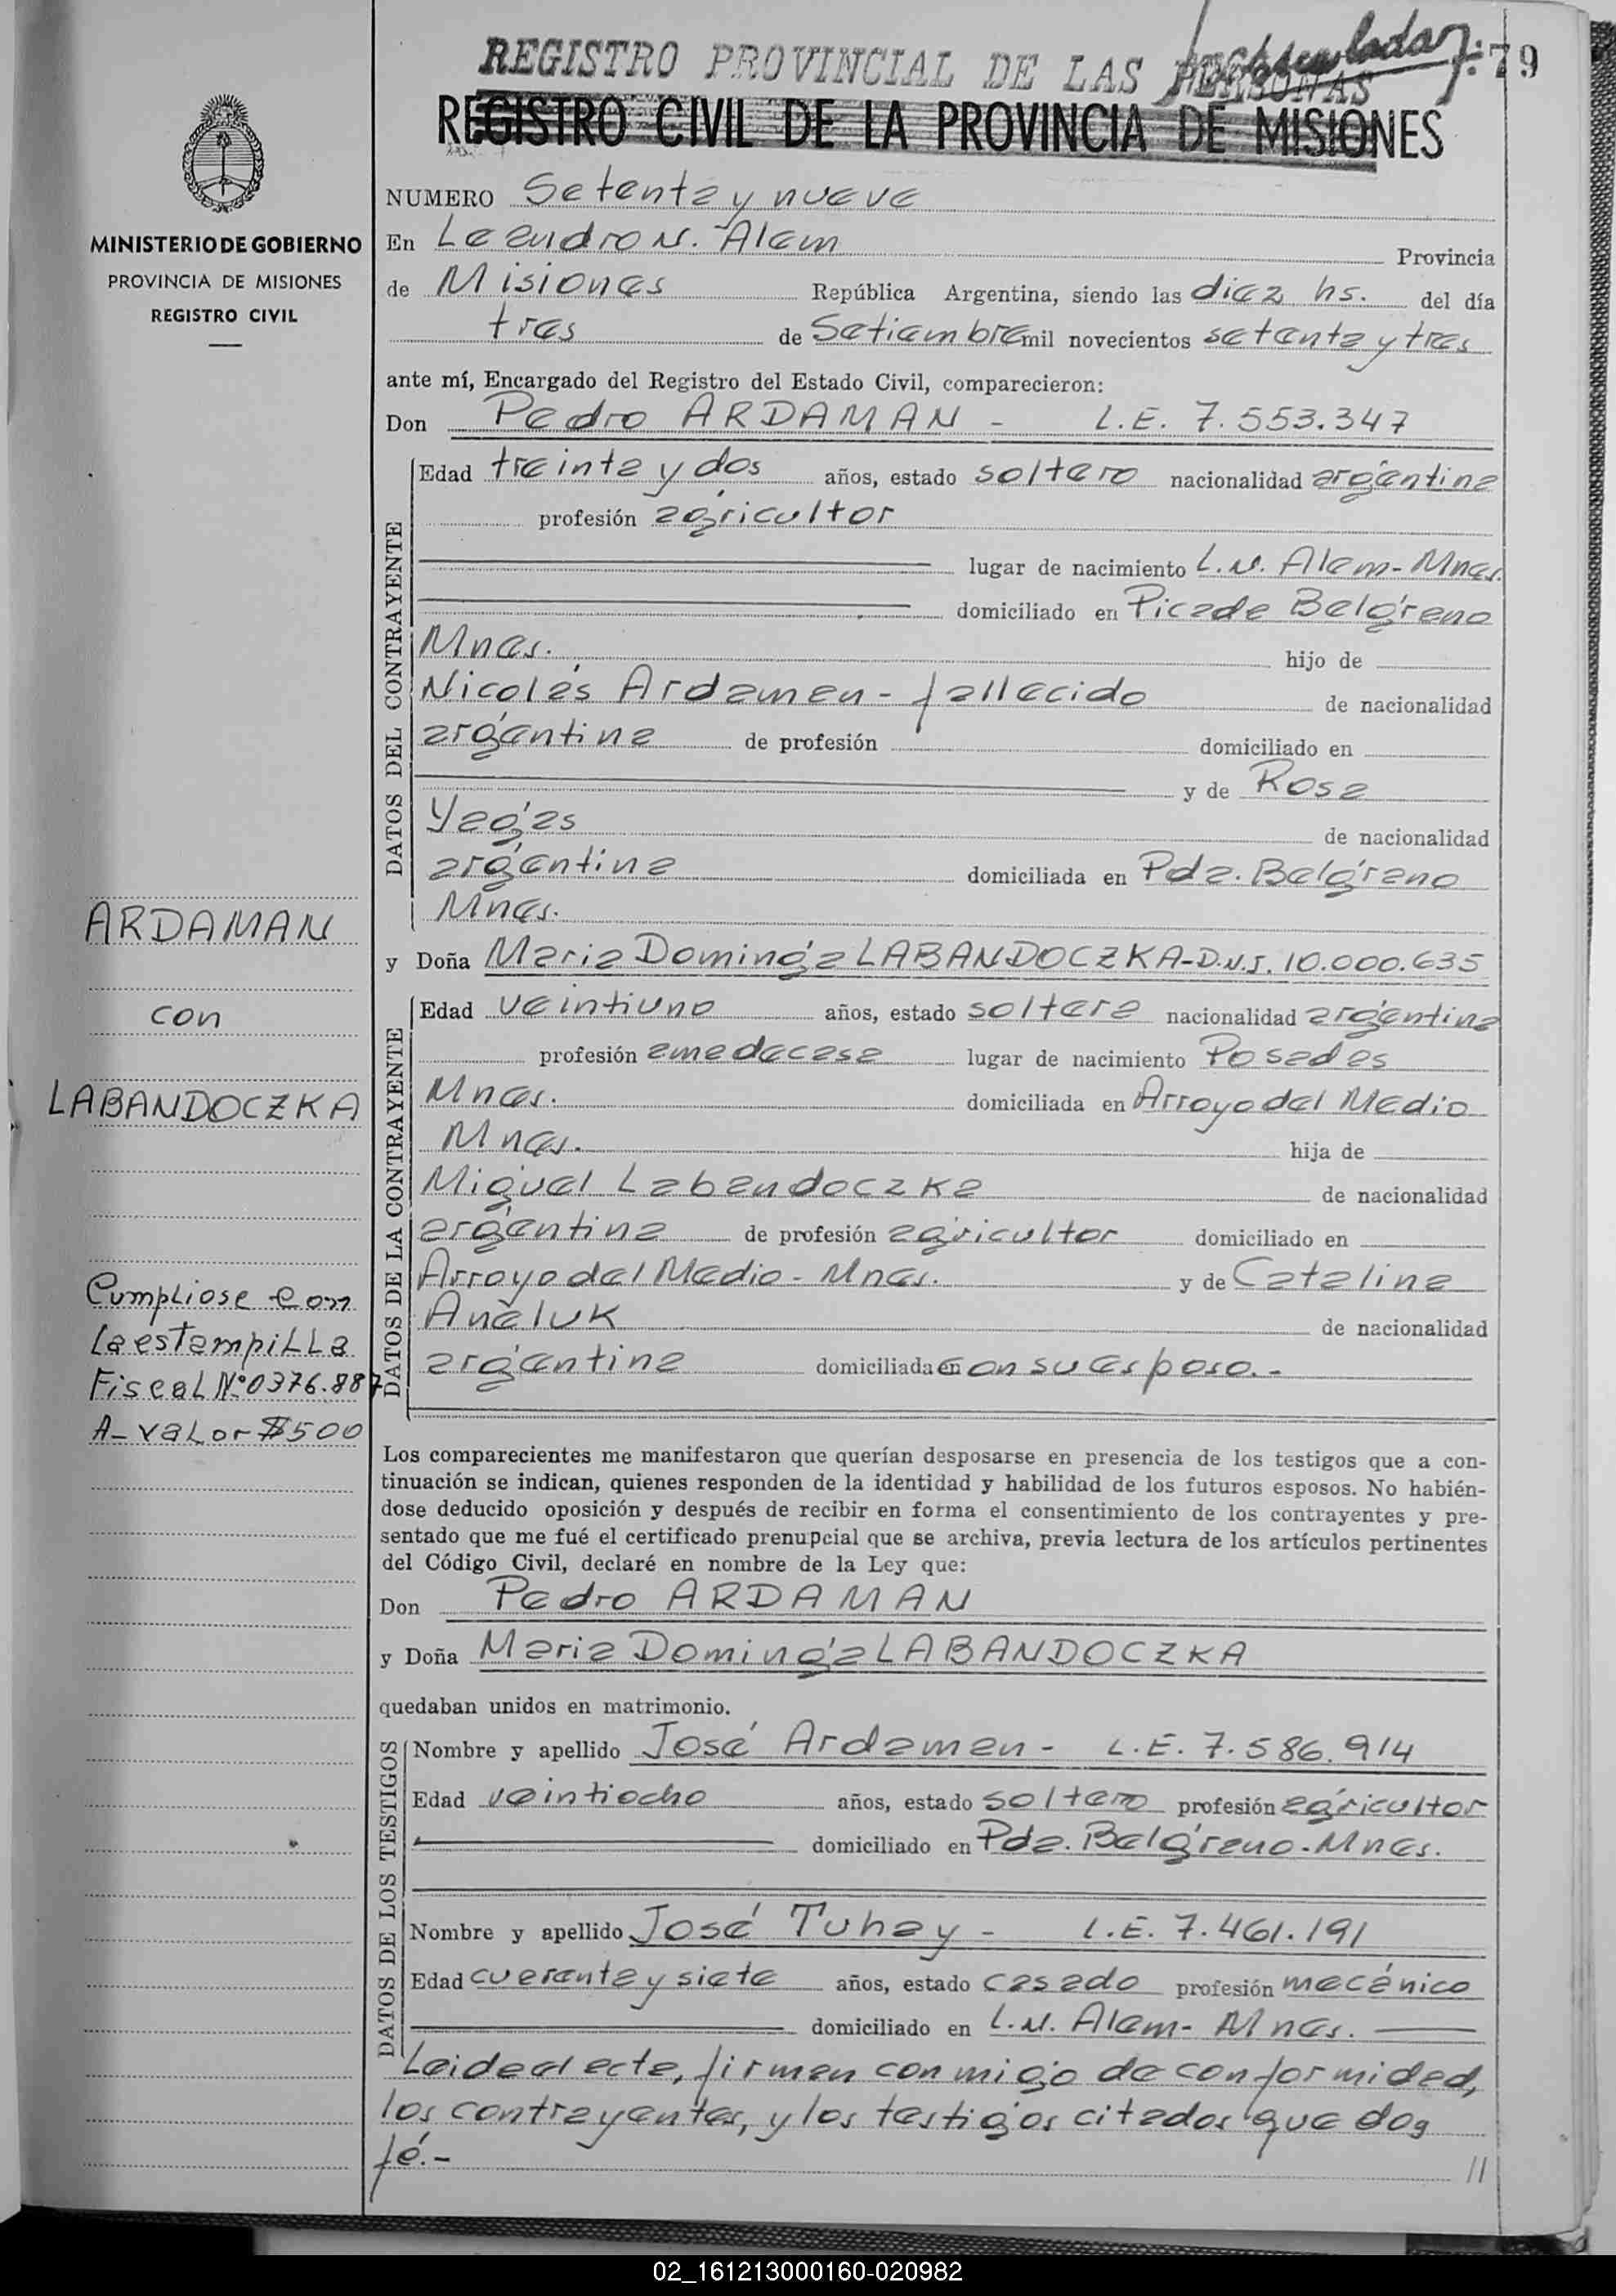 REGISTRO PROVINCIAL DE LAS PERSONAS
79
REGISTRO CIVIL DE LA PROVINCIA DE MISIONES
MINISTERIO DE GOBIERNO
PROVINCIA DE MISIONES
REGISTRO CIVIL
NUMERO Setenta y nueve
En Leandro N. Alem Provincia
de Misiones República Argentina, siendo las diez hs. del día
tres de Setiembre mil novecientos setenta y tres
ante mí, Encargado del Registro del Estado Civil, comparecieron:
Don Pedro ARDAMAN - L.E. 7.553.347
DATOS DEL CONTRAYENTE
Edad treinta y dos años, estado soltero nacionalidad argentina
profesión agricultor
lugar de nacimiento L.N. Alem - Mnes.
domiciliado en Picada Belgrano
Mnes. hijo de
Nicolás Ardaman - fallecido de nacionalidad
argentina de profesión domiciliado en
y de Rosa
Yagas de nacionalidad
argentina domiciliada en Pda. Belgrano
Mnes.
y Doña Maria Dominga LABANDOCZKA - D.N.I. 10.000.635
DATOS DE LA CONTRAYENTE
Edad veintiuno años, estado soltera nacionalidad argentina
profesión amadecasa lugar de nacimiento Posadas
Mnes. domiciliada en Arroyo del Medio
Mnes. hija de
Miguel Labandoczka de nacionalidad
argentina de profesión agricultor domiciliado en
Arroyo del Medio - Mnes. y de Catalina
Analuk de nacionalidad
argentina domiciliada en con su esposo.-
ARDAMAN
con
LABANDOCZKA
Cumpliose con
la estampilla
Fiscal Nº 0376.887
A- valor $500
Los comparecientes me manifestaron que querían desposarse en presencia de los testigos que a con-
tinuación se indican, quienes responden de la identidad y habilidad de los futuros esposos. No habién-
dose deducido oposición y después de recibir en forma el consentimiento de los contrayentes y pre-
sentado que me fué el certificado prenupcial que se archiva, previa lectura de los artículos pertinentes
del Código Civil, declaré en nombre de la Ley que:
Don Pedro ARDAMAN
y Doña Maria Dominga LABANDOCZKA
quedaban unidos en matrimonio.
DATOS DE LOS TESTIGOS
Nombre y apellido José Ardaman - L.E. 7.586.914
Edad veintiocho años, estado soltero profesión agricultor
domiciliado en Pda. Belgrano - Mnes.
Nombre y apellido José Tuhay - L.E. 7.461.191
Edad cuarenta y siete años, estado casado profesión mecánico
domiciliado en L.N. Alem - Mnes.
Leida el acta, firman conmigo de conformidad,
los contrayentes, y los testigos citados que doy
fé.- //
02_161213000160-020982